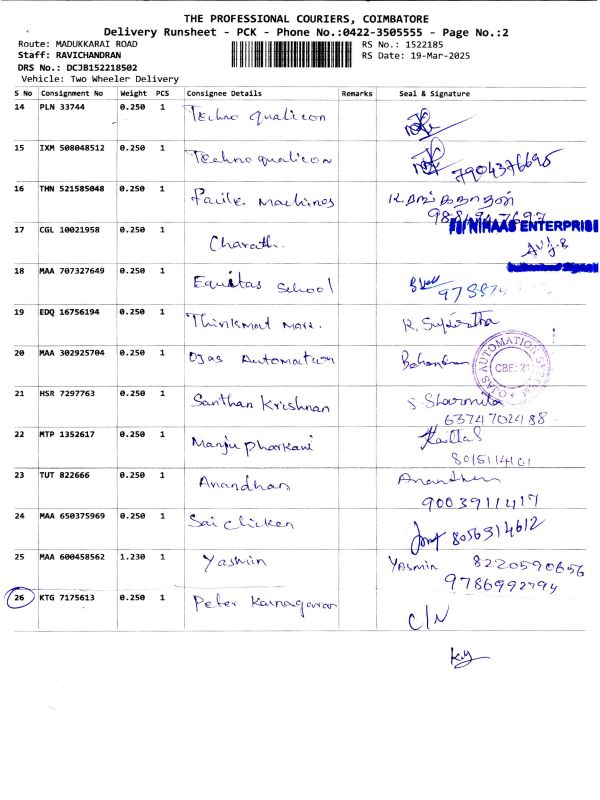 THE PROFESSIONAL COURIERS, COIMBATORE
Delivery Runsheet - PCK - Phone No.:0422-3505555 - Page No.:2
Route: MADUKKARAI ROAD
RS No.: 1522185
Staff: RAVICHANDRAN
RS Date: 19-Mar-2025
DRS No.: DCJB152218502
Vehicle: Two Wheeler Delivery
S No Consignment No Weight PCS Consignee Details Remarks Seal & Signature
14 PLN 33744 0.250 1 Techno qualicon
15 IXM 508048512 0.250 1 Technoqualicon 7904376695
16 THN 521585048 0.250 1 Machines
17 CGL 10021958 0.250 1 Charath. ENTERPRISE
18 MAA 707327649 0.250 1 Equitas School
19 EDQ 16756194 0.250 1 Thinkmat
20 MAA 302925704 0.250 1 Ojas Automation OJAS AUTOMATION CBE: 21
21 HSR 7297763 0.250 1 Santhan Krishnan S. Sharmila
6374702488
22 MTP 1352617 0.250 1
8015114101
23 TUT 822666 0.250 1 Anandhan
9003911417
24 MAA 650375969 0.250 1 Sai Chicken 8056314612
25 MAA 600458562 1.230 1 Yasmin Yasmin 8220590656
9786992794
26 KTG 7175613 0.250 1 Peter
C/N